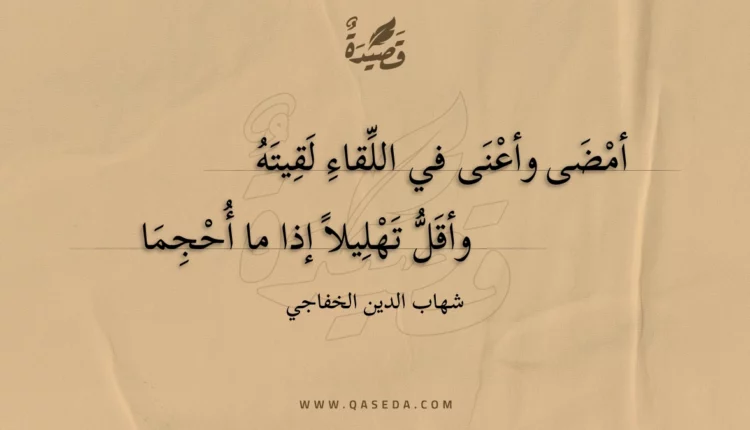 قَصِيدَةٌ
أمْضَى وأعْنَى في اللِّقاءِ لَقِيتَهُ
وأقَلُّ تَهْلِيلاً إذا ما أُحْجِمَا
شهاب الدين الخفاجي
WWW.QASEDA.COM